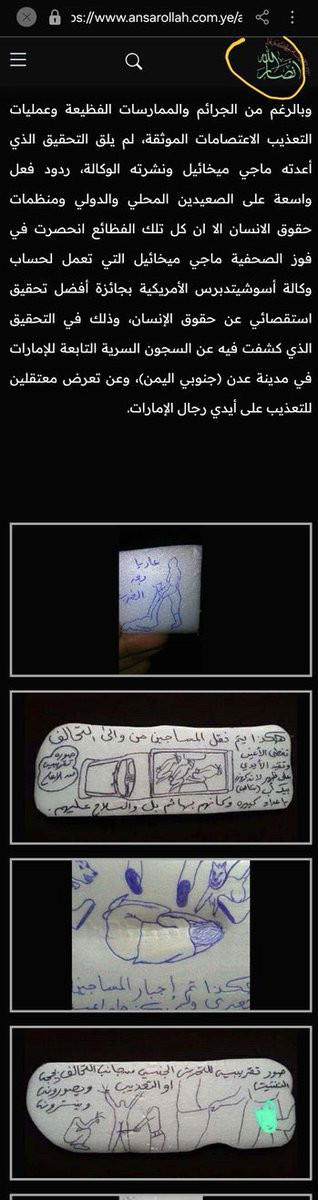 https://www.ansarollah.com.ye/a
أنصار الله
وبالرغم من الجرائم والممارسات الفظيعة وعمليات
التعذيب الاعتصامات الموثقة، لم يلق التحقيق الذي
أعدته ماجي ميخائيل ونشرته الوكالة، ردود فعل
واسعة على الصعيدين المحلي والدولي ومنظمات
حقوق الانسان الا ان كل تلك الفظائع انحصرت في
فوز الصحفية ماجي ميخائيل التي تعمل لحساب
وكالة أسوشيتدبرس الأمريكية بجائزة أفضل تحقيق
استقصائي عن حقوق الإنسان، وذلك في التحقيق
الذي كشفت فيه عن السجون السرية التابعة للإمارات
في مدينة عدن (جنوبي اليمن)، وعن تعرض معتقلين
للتعذيب على أيدي رجال الإمارات.
عاريا
هكذا يتم نقل المساجين من وإلى التحالف
تغطى الأعين
وتقيد الأيدي
صورة
تقريبية
باعداد كبيرة وكأنهم بهائم بل والسلاح عليهم.
هكذا تم إجبار المساجين
صور تقريبية للتحرش الجنسي من جانب التحالف
او التعذيب
ويصورونه